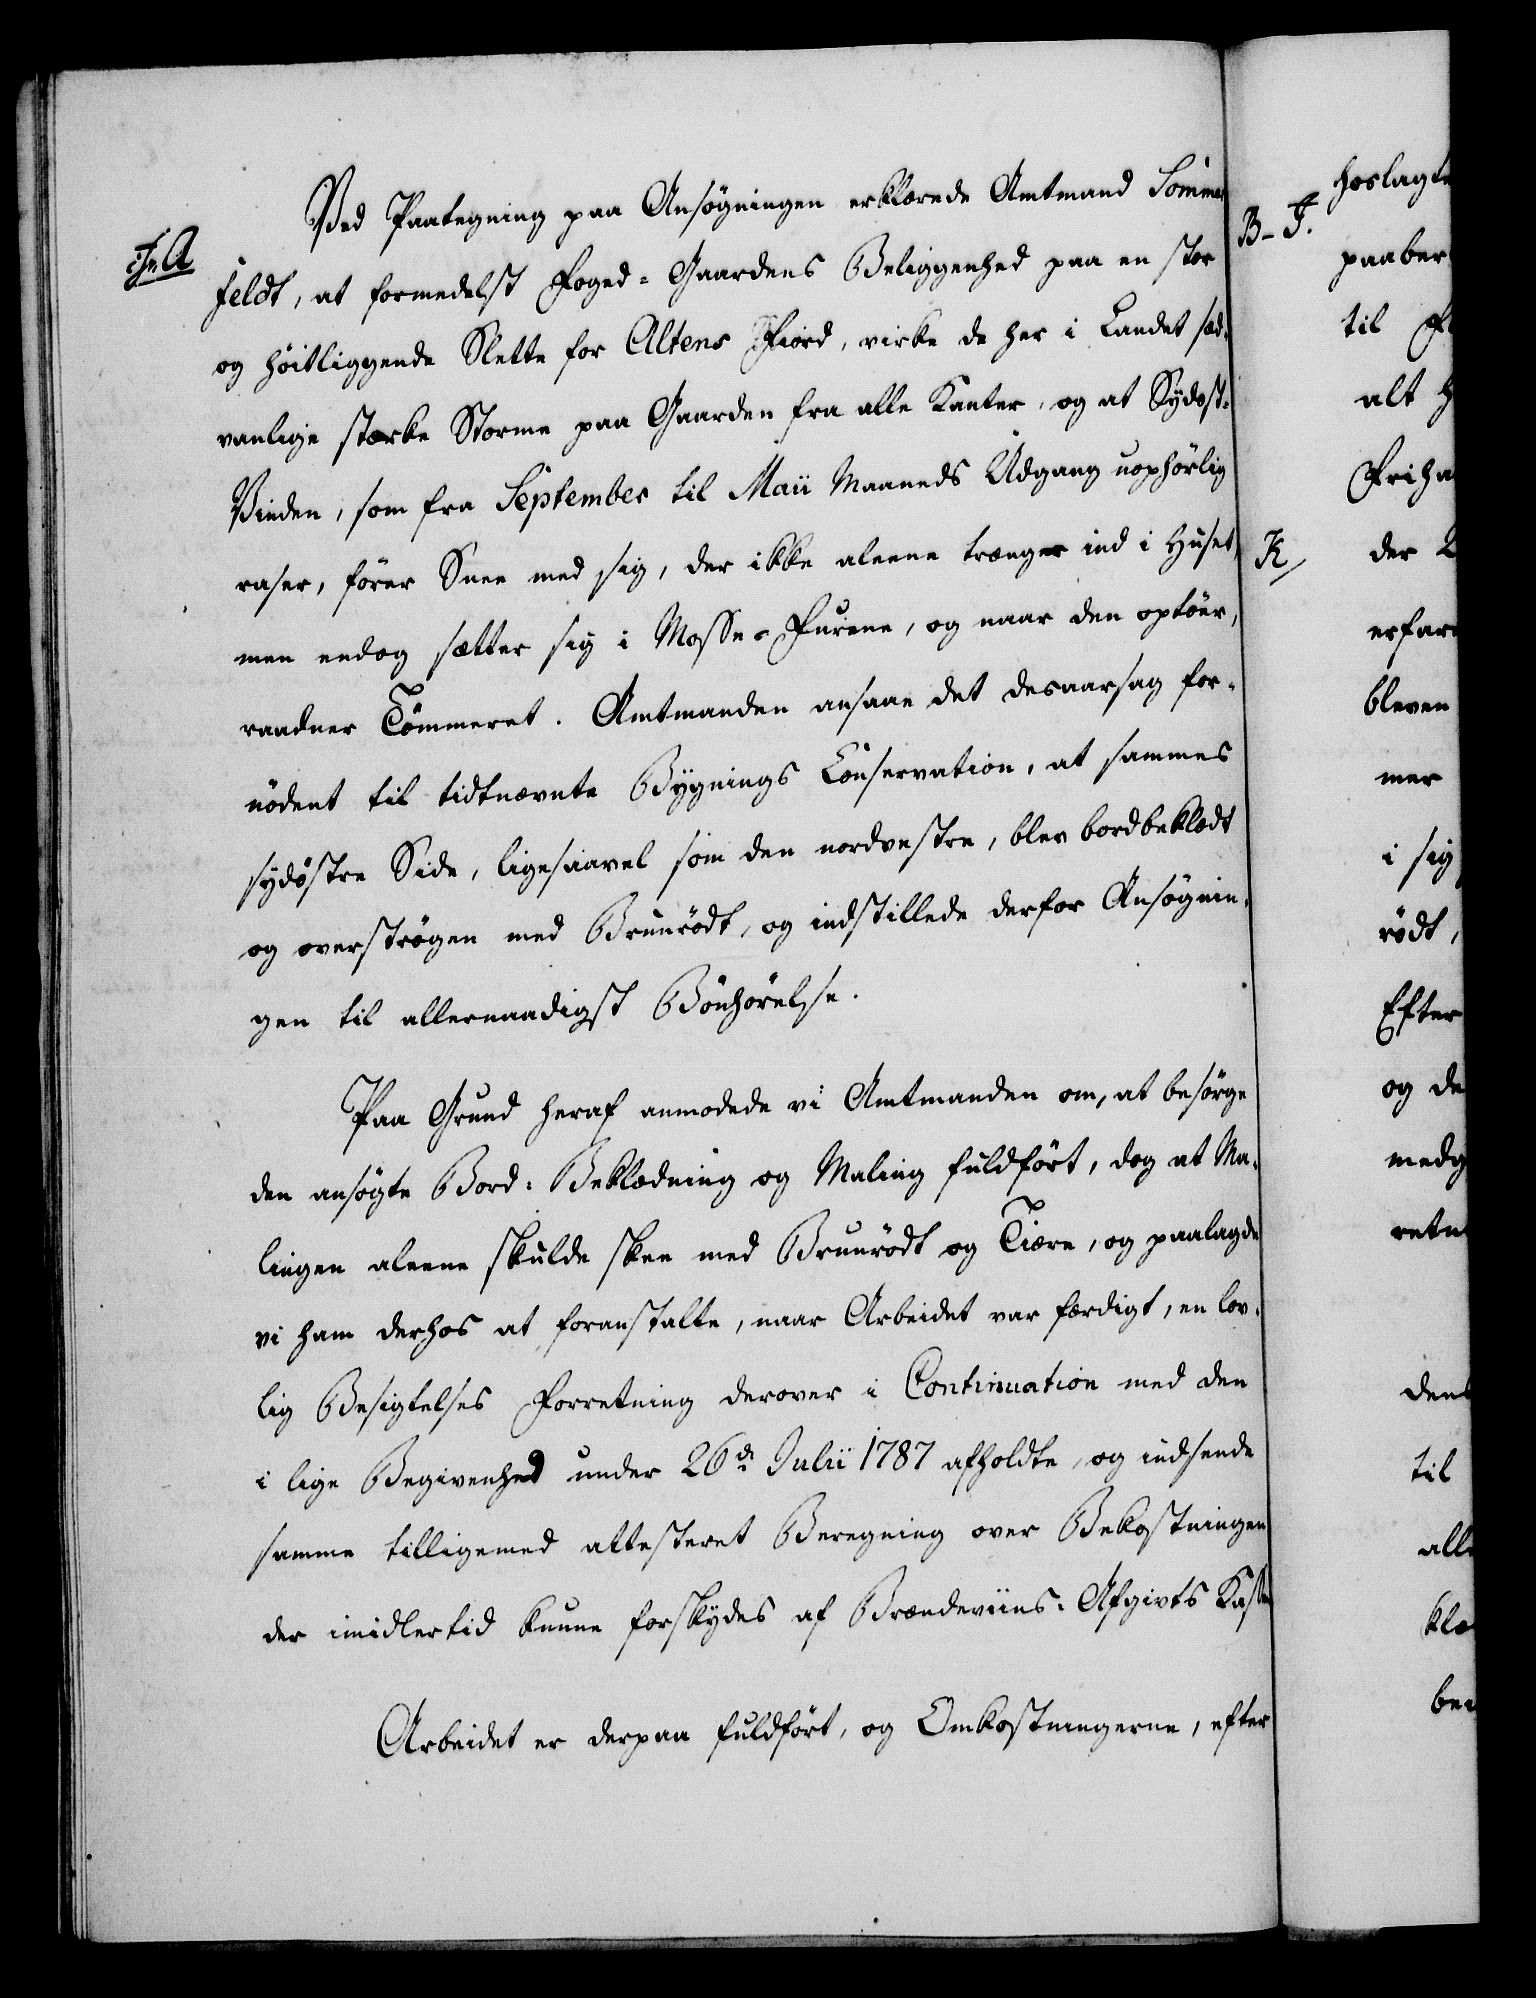 Ved Paategning paa Ansøgningen erklærede Amtmand Sommer
feldt, at formedelst Foged-Gaardens Beliggenhed paa en stor
og höitliggende Slette for Altens Fiord, virke de her i Landet sæd-
vanlige stærke Storme paa Gaarden fra alle Kanter, og at Sydost-
Vinden, som fra September til Maii Maaneds Udgang uophörlig
raser, förer Snee med sig, der ikke aleene trænger ind i Huset,
men endog sætter sig i Mosse-Furene, og naar den optöer,
raadner Tömmeret. Amtmanden ansaae det desaarsag for-
nödent til tidtnævnte Bygnings Conservation, at sammes
sydöstre Side, ligesaavel som den nordvestre, blev bordbeklædt
og overströgen med Bruunrödt, og indstillede derfor Ansögnin-
gen til allernaadigst Bönhörelse.
Paa Grund heraf anmodede vi Amtmanden om, at besörge
den ansögte Bord-Beklædning og Maling fuldfört, dog at Ma-
lingen aleene skulde skee med Bruunrödt og Tiære, og paalagde
vi ham derhos at foranstalte, naar Arbeidet var færdigt, en lov-
lig Besigtelses Forretning derover i Continuation med den
i lige Begivenhed under 26de Julii 1787 afholdte, og indsende
samme tilligemed attesteret Beregning over Bekostningen
der imidlertid kunne forskydes af Brændeviins-Afgivts Kassen
Arbeidet er derpaa fuldfört, og Omkostningerne, efter
B-J.
K/
hoslagte
paaber
til
alt
der
bleven
mer
i sig
rödt,
Efter
og de
til